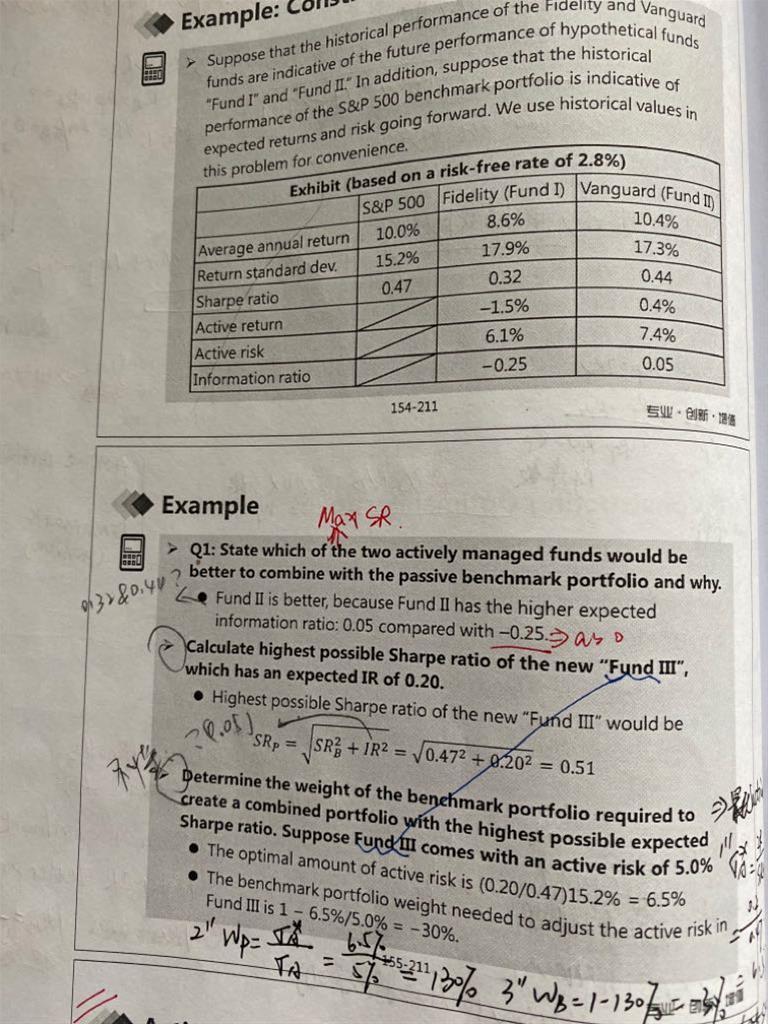 Example:
Suppose that the historical performance of the Fidelity and Vanguard
funds are indicative of the future performance of hypothetical funds
"Fund I" and "Fund II." In addition, suppose that the historical
performance of the S&P 500 benchmark portfolio is indicative of
expected returns and risk going forward. We use historical values in
this problem for convenience.
Exhibit (based on a risk-free rate of 2.8%)
S&P 500 Fidelity (Fund I) Vanguard (Fund II)
Average annual return 10.0% 8.6% 10.4%
Return standard dev. 15.2% 17.9% 17.3%
Sharpe ratio 0.47 0.32 0.44
Active return −1.5% 0.4%
Active risk 6.1% 7.4%
Information ratio −0.25 0.05
154-211 专业·创新·增值
Example
Max SR.
Q1: State which of the two actively managed funds would be
better to combine with the passive benchmark portfolio and why.
0.32&0.44 ?
Fund II is better, because Fund II has the higher expected
information ratio: 0.05 compared with −0.25. ⇒ as 0
Calculate highest possible Sharpe ratio of the new "Fund III",
which has an expected IR of 0.20.
Highest possible Sharpe ratio of the new "Fund III" would be
(0.05)
SR_P = √(SR_B² + IR²) = √(0.47² + 0.20²) = 0.51
Determine the weight of the benchmark portfolio required to
create a combined portfolio with the highest possible expected
Sharpe ratio. Suppose Fund III comes with an active risk of 5.0%
The optimal amount of active risk is (0.20/0.47)15.2% = 6.5%
The benchmark portfolio weight needed to adjust the active risk in
Fund III is 1 − 6.5%/5.0% = −30%.
2" Wp = σA*/σA = 6.5%/5% = 130% 3" WB = 1-130% = -3%
155-211